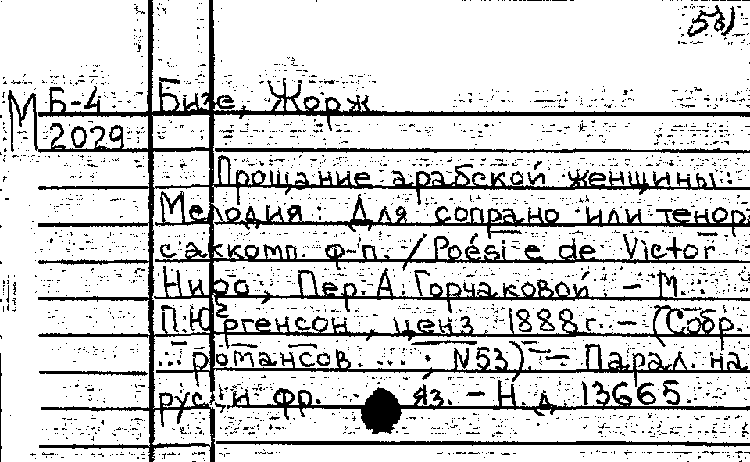 58)
М Б-4 Бизе, Жорж
2029
Прощание арабской женщины:
Мелодия: Для сопрано или тенора
с аккомп. ф-п. / Poésie de Victor
Hugo; Пер. А. Горчаковой. - М.:
П. Юргенсон, ценз. 1888г. - (Собр.
... романсов. ... ; N53). - Парал. на
рус. и фр. яз. - Н. д. 13665.